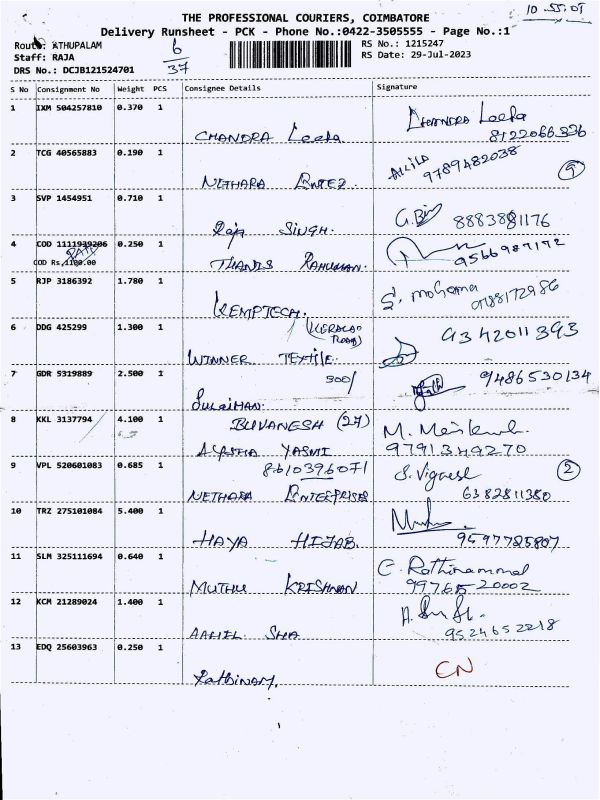 10.55.01
THE PROFESSIONAL COURIERS, COIMBATORE
Delivery Runsheet - PCK - Phone No.:0422-3505555 - Page No.:1
Route: ATHUPALAM
Staff: RAJA
DRS No.: DCJB121524701
6
37
RS No.: 1215247
RS Date: 29-Jul-2023
S No Consignment No Weight PCS Consignee Details Signature
1 IXM 504257810 0.370 1
CHANDRA Leela CHANDRA Leela
8122066326
2 TCG 40565883 0.190 1
NETHARA ENTEZ. AKILA 9789482038 9
3 SVP 1454951 0.710 1
Raja SINGH. 8883881176
4 COD 1111939206 0.250 1
COD Rs.1100.00
THANIS RAHUMAN. 9566987172
5 RJP 3186392 1.780 1
KEMPTECH.
6 DDG 425299 1.300 1
WINNER TEXTILE. 9342011393
7 GDR 5319889 2.500 1
500/
Sulaiman. 9486530134
8 KKL 3137794 4.100 1
BUVANESH (27)
YASMI M.
9791349270
9 VPL 520601083 0.685 1
8610396071
NETHARA ENTERPRISES S. Vignesh 2
6382811380
10 TRZ 275101084 5.400 1
HAYA HIJAB. 9597725807
11 SLM 325111694 0.640 1
MUTHU KRISHNAN C. Rathinammal
9976520002
12 KCM 21289024 1.400 1
AAHIL SHA 9524652218
13 EDQ 25603963 0.250 1
Rathinam. CN